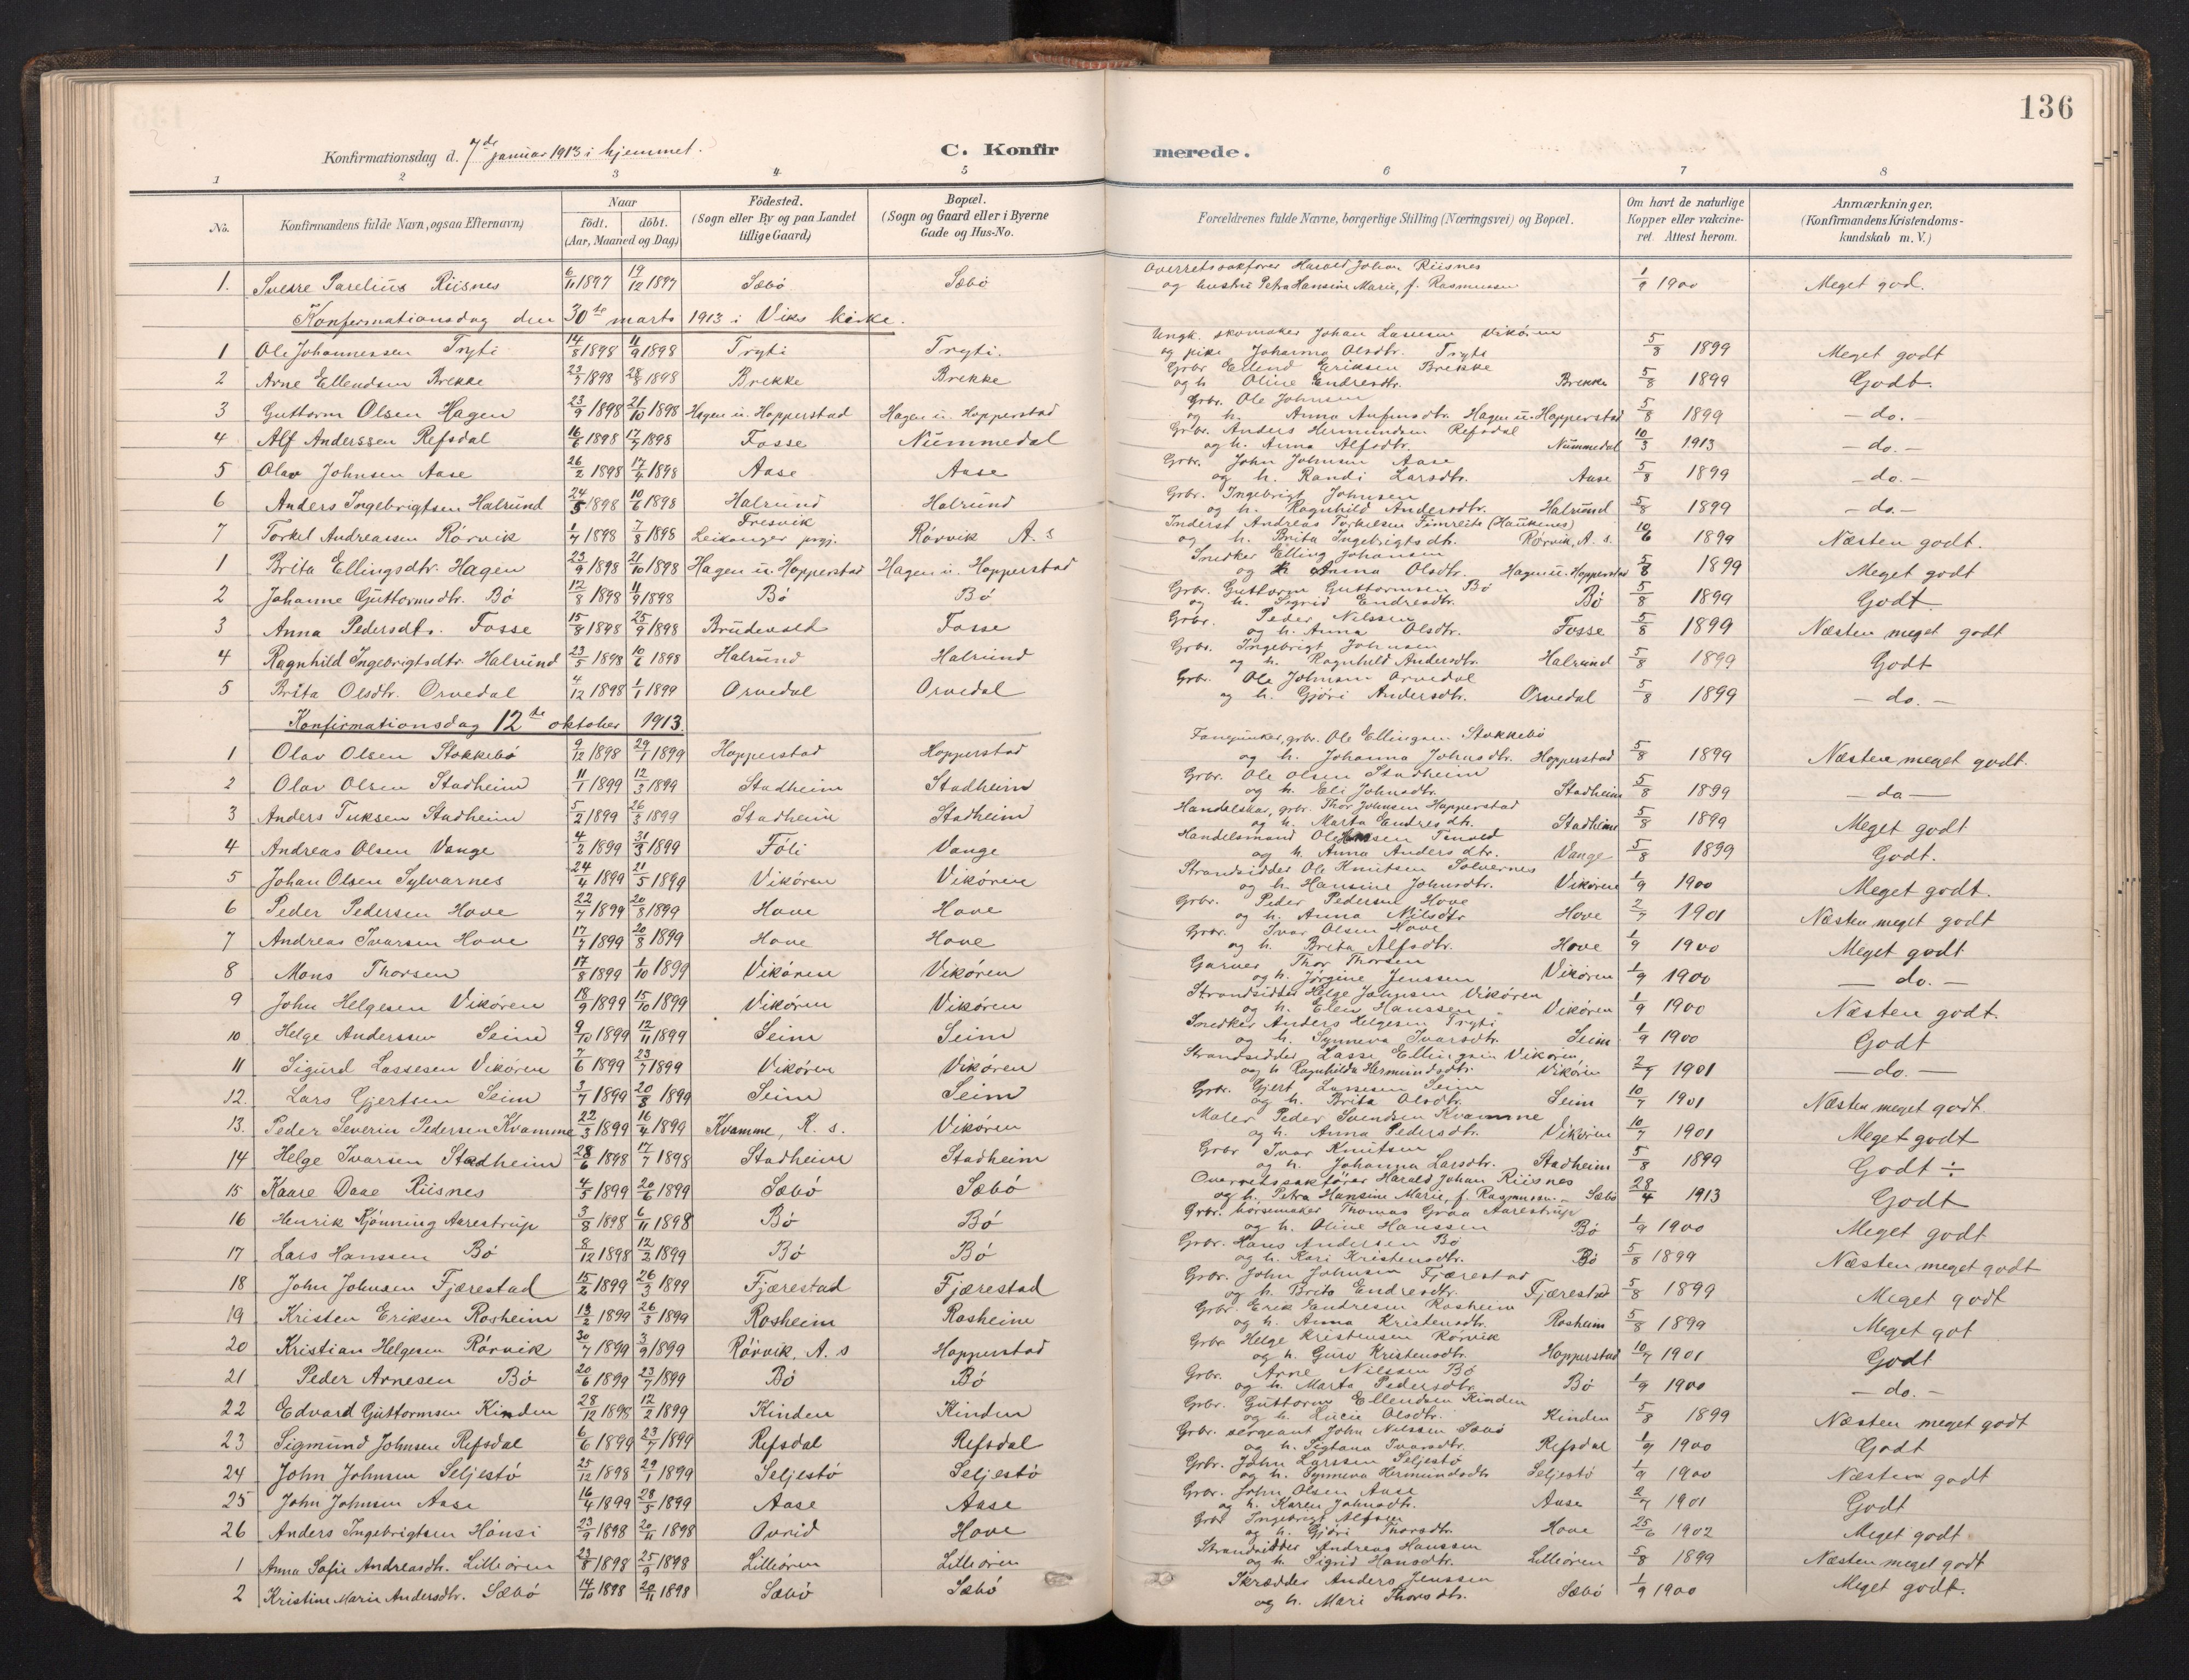 136
Konfirmationsdag d. 7de januar 1913 i hjemmet.
C. Konfirmerede.
1 2 3 4 5 6 7 8
No. Konfirmandens fulde Navn, ogsaa Efternavn) Naar födt. döbt. (Aar, Maaned og Dag) Födested. (Sogn eller By og paa Landet tillige Gaard) Bopæl. (Sogn og Gaard eller i Byerne Gade og Hus-No. Forældrenes fulde Navne, borgerlige Stilling (Næringsvei) og Bopæl. Om havt de naturlige Kopper eller vakcineret. Attest herom. Anmærkninger. (Konfirmandens Kristendomskundskab m. V.)
1. Sverre Parelius Riisnes 6/11 1897 19/12 1897 Sæbö Sæbö Overretssakförer Harald Johan Riisnes og hustru Petra Hansine Marie, f. Rasmussen 1/9 1900 Meget god.
Konfirmationsdag den 30te marts 1913 i Viks kirke.
1 Ole Johannessen Tryti 14/8 1898 11/9 1898 Tryti Tryti. Ungk. skomaker Johan Lassesen Vikören og pike Johanna Olsdtr. Tryti 5/8 1899 Meget godt
2 Arne Ellendsen Brekke 23/7 1898 28/8 1898 Brekke Brekke Grbr Ellend Eriksen Brekke og h. Oline Endresdtr. Brekke 5/8 1899 Godt.
3 Guttorm Olsen Hagen 23/9 1898 21/10 1898 Hagen u. Hopperstad Hagen u. Hopperstad Grbr. Ole Johnsen og h. Anna Anfinsdtr. Hagen u. Hopperstad 5/8 1899 - do. -
4 Alf Anderssen Refsdal 16/6 1898 17/7 1898 Fosse Nummedal Grbr. Anders Hermundsen Refsdal og h. Anna Alfsdtr. Nummedal 10/3 1913 - do. -
5 Olav Johnsen Aase 26/2 1898 17/4 1898 Aase Aase Grbr. John Johnsen Aase og h. Randi Larsdtr. Aase 5/8 1899 - do. -
6 Anders Ingebrigtsen Halrund 24/5 1898 10/6 1898 Halrund Halrund Grbr. Ingebrigt Johnsen og h. Ragnhild Andersdtr. Halrund 5/8 1899 - do. -
7 Torkel Andreassen Rörvik 1/7 1898 7/8 1898 Fresvik Leikanger prgj. Rörvik A. s Inderst Andreas Torkelsen Fimreite (Haukenes) og h. Brita Ingebrigtsdtr. Rörvik, A. s. 10/6 1899 Næsten godt.
1 Brita Ellingsdtr. Hagen 23/9 1898 21/10 1898 Hagen u. Hopperstad Hagen u. Hopperstad Snedker Elling Johansen og h. Anna Olsdtr. Hagen u. Hopperstad 5/8 1899 Meget godt
2 Johanne Guttormsdtr. Bö 12/8 1898 11/9 1898 Bö Bö Grbr. Guttorm Guttormsen Bö og h. Sigrid Endresdtr. Bö 5/8 1899 Godt
3 Anna Pedersdtr. Fosse 15/8 1898 25/9 1898 Brudevolt Fosse Grbr. Peder Nilssen og h. Anna Olsdtr. Fosse 5/8 1899 Næsten meget godt
4 Ragnhild Ingebrigtsdtr. Halrund 23/5 1898 10/6 1898 Halrund Halrund Grbr. Ingebrigt Johnsen og h. Ragnhild Andersdtr. Halrund 5/8 1899 Godt
5 Brita Olsdtr. Orvedal 4/12 1898 1/1 1899 Orvedal Orvedal Grbr. Ole Johnsen Orvedal og h. Gjöri Andersdtr. Orvedal 5/8 1899 - do. -
Konfirmationsdag 12te oktober 1913.
1 Olav Olsen Stokkebö 9/12 1898 29/1 1899 Hopperstad Hopperstad Fanejunker, grbr. Ole Ellingsen Stokkebö og h. Johanna Johnsdtr. Hopperstad 5/8 1899 Næsten meget godt.
2 Olav Olsen Stadheim 11/1 1899 12/3 1899 Stadheim Stadheim Grbr. Ole Olsen Stadheim og h. Eli Johnsdtr. Stadheim 5/8 1899 - do -
3 Anders Tuksen Stadheim 5/2 1899 26/3 1899 Stadheim Stadheim Handelskar, grbr. Thor Johnsen Hopperstad og h. Marta Endresdtr. Stadheim 5/8 1899 Meget godt
4 Andreas Olsen Vange 4/2 1899 31/3 1899 Föli Vange Handelsmand Ole Hansen og h. Anna Andersdtr. Vange 5/8 1899 Godt.
5 Johan Olsen Sylvarnes 24/4 1899 21/5 1899 Vikören Vikören Strandsidder Ole Knutsen Solvernes og h. Hansine Johnsdtr. Vikören 1/9 1900 Meget godt.
6 Peder Pedersen Hove 22/7 1899 20/8 1899 Hove Hove Grbr. Peder Pedersen Hove og h. Anna Nilsdtr Hove 2/7 1901 Næsten meget godt
7 Andreas Ivarsen Hove 17/7 1899 20/8 1899 Hove Hove Grbr. Ivar Olsen Hove og h. Brita Alfsdtr. Hove 1/9 1900 Meget godt
8 Mons Thorsen 17/8 1899 1/10 1899 Vikören Vikören Garver Thor Thorsen og h. Jörgine Jenssen Vikören 1/9 1900 - do. -
9 John Helgesen Vikören 18/9 1899 15/10 1899 Vikören Vikören Strandsidder Helge Johnsen Vikören og h. Elen Hanssen Vikören 1/9 1900 Næsten godt.
10 Helge Anderssen Seim 9/10 1899 12/11 1899 Seim Seim Snedker Anders Helgesen Tryti og h. Synneva Ivarsdtr. Seim 1/9 1900 Godt
11 Sigurd Lassesen Vikören 7/6 1899 23/7 1899 Vikören Vikören Strandsidder Lasse Ellingsen Vikören og h Ragnhilda Hermundsdtr. Vikören 2/7 1901 - do. -
12. Lars Gjertsen Seim 3/7 1899 20/8 1899 Seim Seim Grbr. Gjert Lassesen Seim og h. Brita Olsdtr. Seim 10/7 1901 Næsten meget godt.
13. Peder Severin Pedersen Kvamme 22/3 1899 16/4 1899 Kvamme, K. s. Vikören Maler Peder Svendsen Kvamme og h. Anna Pedersdtr. Vikören 10/7 1901 Meget godt
14 Helge Ivarsen Stadheim 28/6 1898 17/7 1898 Stadheim Stadheim Grbr Ivar Knutsen og h. Johanna Larsdtr. Stadheim 5/8 1899 Godt ÷
15 Kaare Daae Riisnes 4/5 1899 20/6 1899 Sæbö Sæbö Overretssakförer Harald Johan Riisnes og h. Petra Hansine Marie, f. Rasmussen Sæbö 28/4 1913 Godt
16 Henrik Kjönning Aarestrup 3/8 1898 6/11 1898 Bö Bö Grbr. börsemaker Thomas Graa Aarestrup og h. Oline Hanssen Bö 1/9 1900 Meget godt
17 Lars Hanssen Bö 8/12 1898 12/2 1899 Bö Bö Grbr. Hans Andersen Bö og h. Kari Kristensdtr. Bö 5/8 1899 Næsten meget godt
18 John Johnsen Fjærestad 15/2 1899 26/3 1899 Fjærestad Fjærestad Grbr. John Johnsen Fjærestad og h. Brita Endresdtr. Fjærestad 5/8 1899 Meget godt
19 Kristen Eriksen Rosheim 13/2 1899 26/3 1899 Rosheim Rosheim Grbr. Erik Endresen Rosheim og h. Anna Kristensdtr. Rosheim 5/8 1899 Meget got
20 Kristian Helgesen Rörvik 30/7 1899 3/9 1899 Rörvik, A. s Hopperstad Grbr Helge Kristensen Rörvik og h. Guro Kristensdtr. Hopperstad 10/7 1901 Godt
21 Peder Arnesen Bö 20/6 1899 23/7 1899 Bö Bö Grbr. Arne Nilssen Bö og h. Marta Pedersdtr. Bö 1/9 1900 - do. -
22 Edvard Guttormsen Kinden 28/12 1898 12/2 1899 Kinden Kinden Grbr. Guttorm Ellendsen Kinden og h. Lucie Olsdtr. Kinden 5/8 1899 Næsten meget godt
23 Sigmund Johnsen Refsdal 6/6 1899 23/7 1899 Refsdal Refsdal Grbr. sergeant John Nilssen Sæbö og h. Ivarsdtr. Refsdal 1/9 1900 Godt
24 John Johnsen Seljestö 25/12 1898 29/1 1899 Seljestö Seljestö Grbr. John Larssen Seljestö og h. Synneva Hermundsdtr Seljestö 1/9 1900 Næsten godt
25 John Johnsen Aase 16/4 1899 28/5 1899 Aase Aase Grbr. John Olsen Aase og h. Karen Johnsdtr. Aase 2/7 1901 Godt
26 Anders Ingebrigtsen Hönsi 23/9 1898 20/11 1898 Ovrid Hove Grbr Ingebrigt Alfsen og h. Gjöri Thorsdtr. Hove 25/6 1902 Meget godt
1 Anna Sofie Andreasdtr. Lilleören 23/8 1898 25/9 1898 Lilleören Lilleören Strandsidder Andreas Hanssen og h. Sigrid Hansdtr. Lilleören 5/8 1899 Næsten meget godt
2 Kristine Marie Andersdtr. Sæbö 14/10 1898 20/11 1898 Sæbö Sæbö Skrædder Anders Jenssen og h. Mari Thorsdtr. Sæbö 1/9 1900 Meget godt.